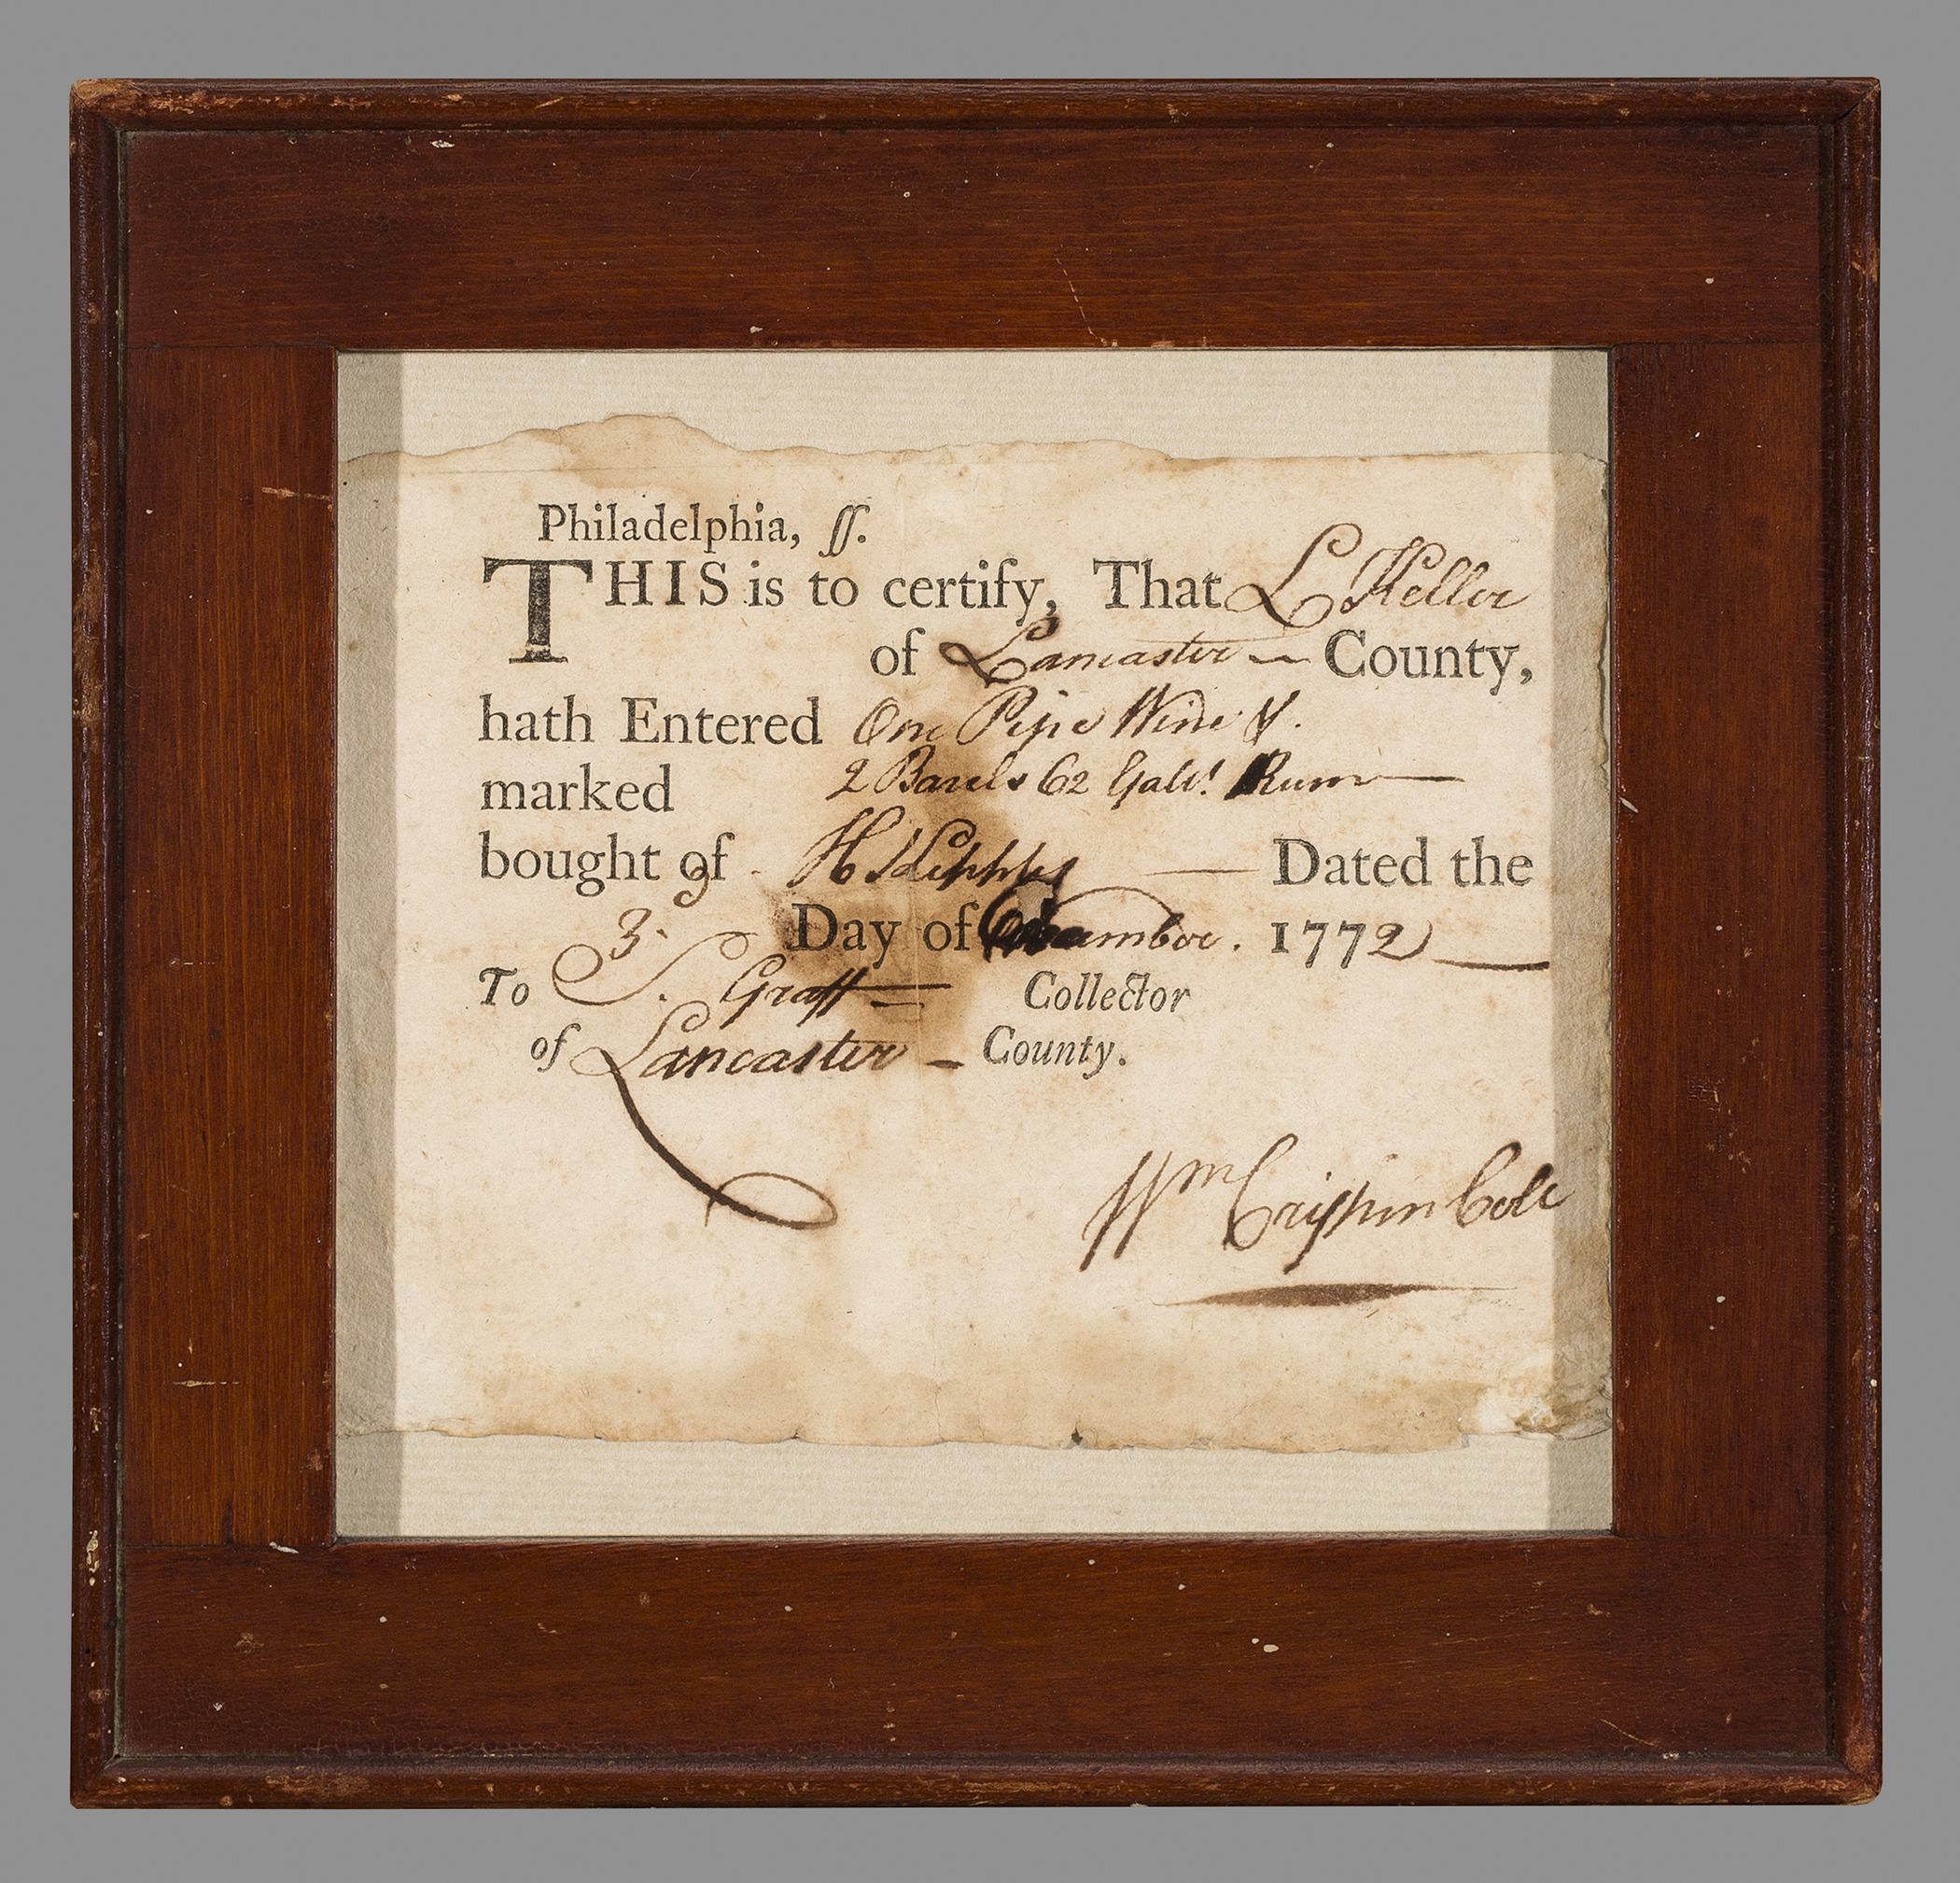 Philadelphia, ſſ.
THIS is to certify, That L Heller
of Lancaster County,
hath Entered One Pipe Wine &.
marked 2 Barels 62 Gals. Rum
bought of H Kepple Dated the
3 Day of 1772
To S. Graff Collector
of Lancaster County.
Wm Crispin Cole